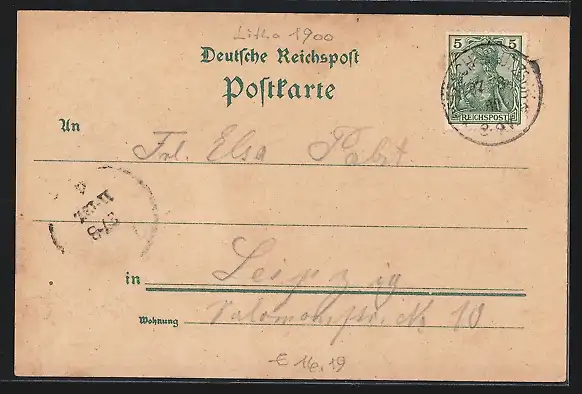 Litho 1900
Deutsche Reichspost
Postkarte
5 5
REICHSPOST
An
Frl. Elsa Pabst
in Leipzig
Wohnung Salomonstr. № 10